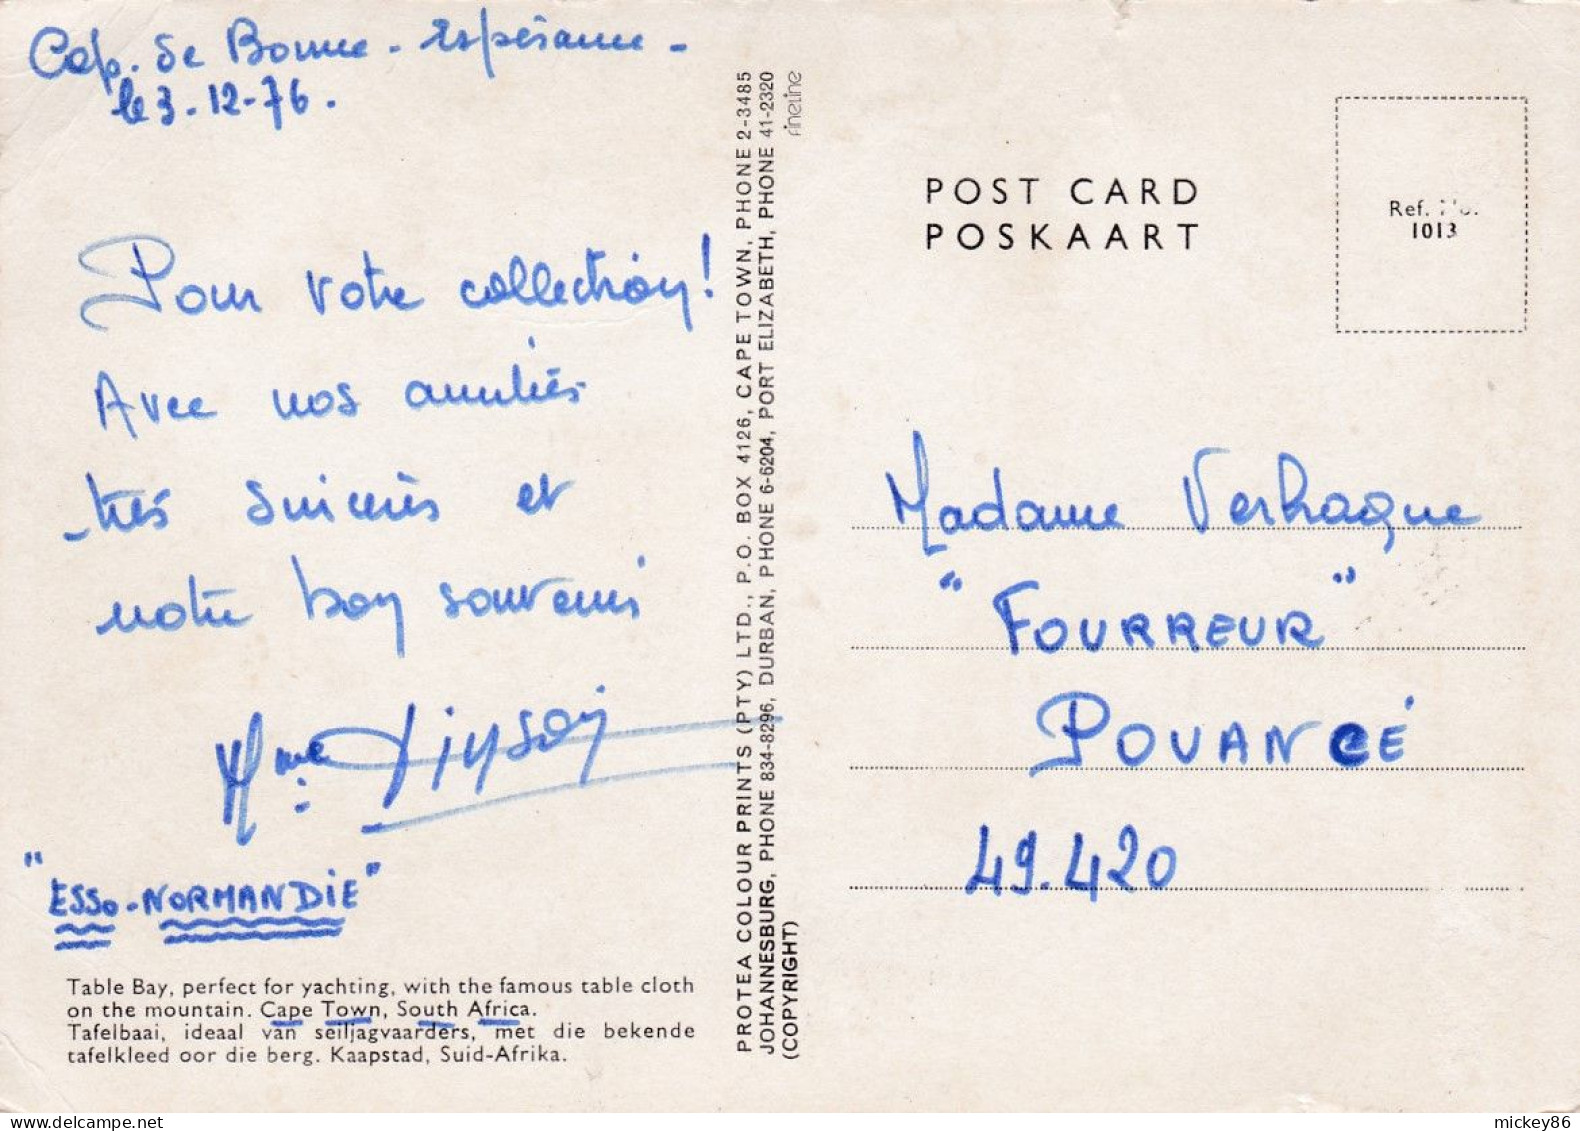 Cap. de Bonne-Espérance-
le 3.12-76.
Pour votre collection!
Avec nos amitiés
très sincères et
notre bon souvenir
Mme
"ESSO-NORMANDIE"
Table Bay, perfect for yachting, with the famous table cloth
on the mountain. Cape Town, South Africa.
Tafelbaai, ideaal van seiljagvaarders, met die bekende
tafelkleed oor die berg. Kaapstad, Suid-Afrika.
PROTEA COLOUR PRINTS (PTY) LTD., P.O. BOX 4126, CAPE TOWN, PHONE 2-3485
JOHANNESBURG, PHONE 834-8296, DURBAN, PHONE 6-6204, PORT ELIZABETH, PHONE 41-2320
(COPYRIGHT)
fineline
POST CARD
POSKAART
Ref. No.
1013
Madame Verhague
"FOURREUR"
POUANCÉ
49.420
mickey86